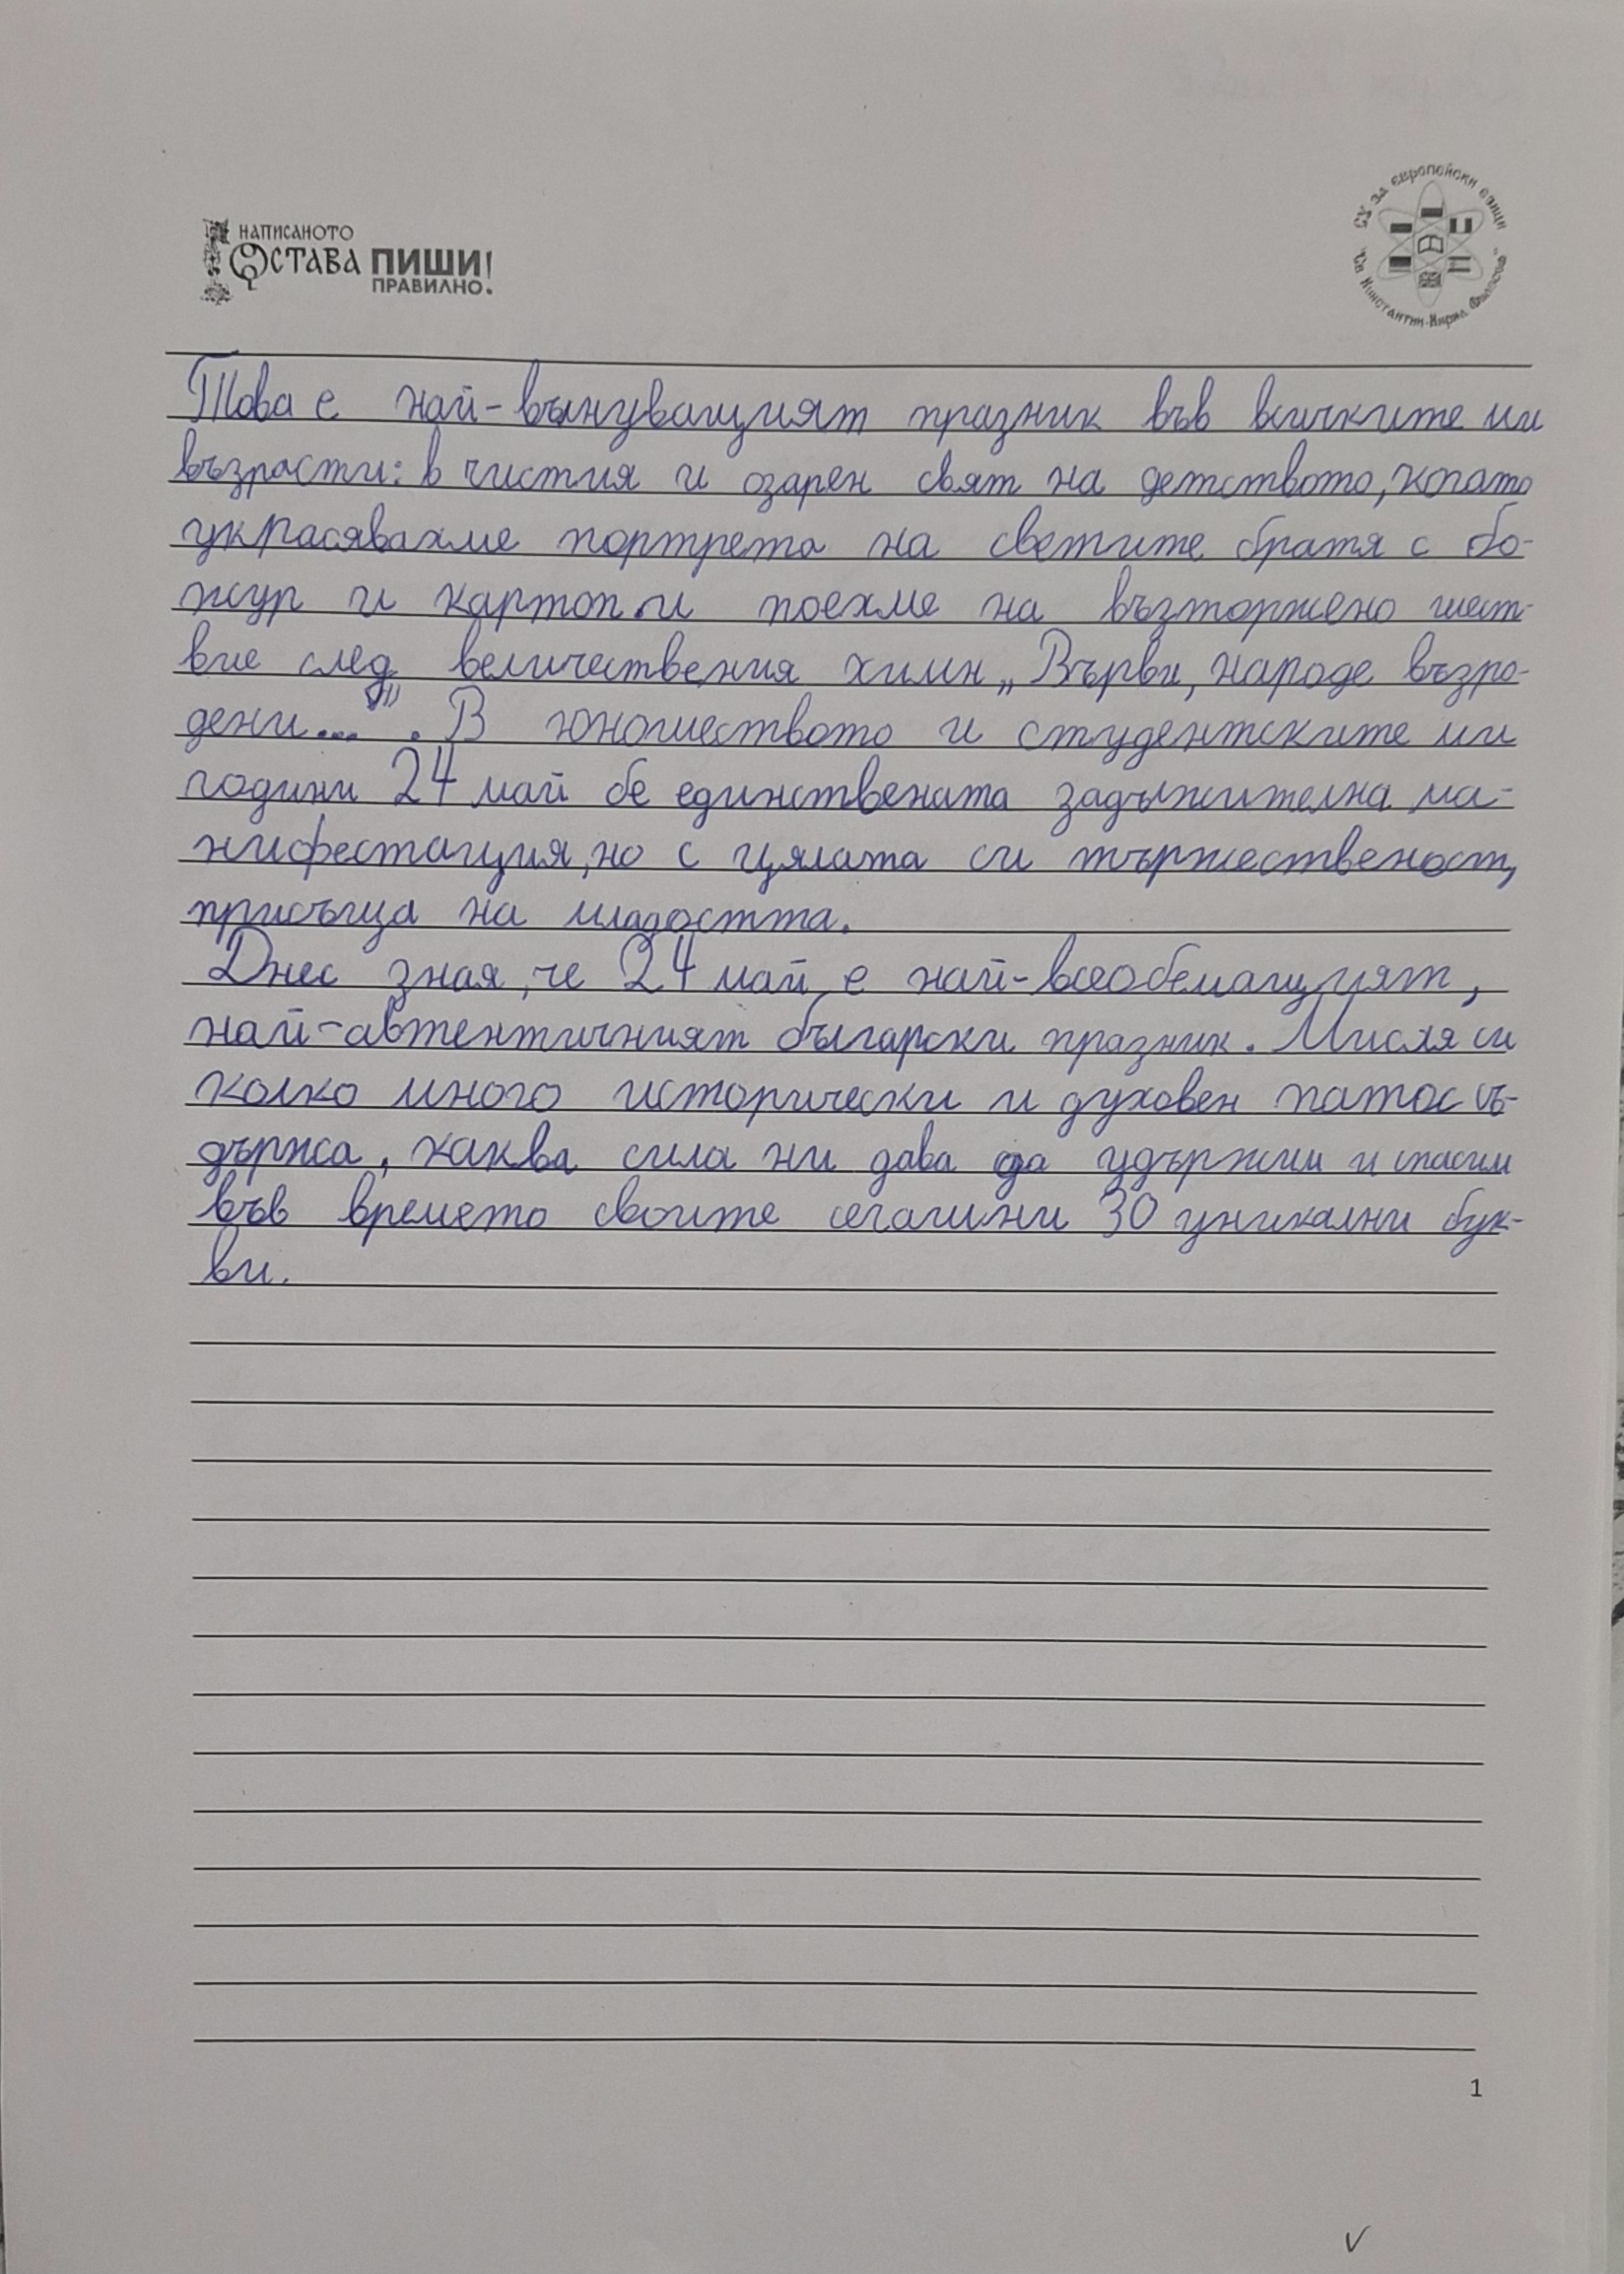 НАПИСАНОТО
ОСТАВА ПИШИ!
ПРАВИЛНО!
СУ за европейски езици
"Св. Константин-Кирил Философ"
Това е най-вълнуващият празник във всичките ми
възрасти: в чистия и озарен свят на детството, когато
украсявахме портрета на светите братя с бо-
жур и картоп и поехме на възторжено шест-
вие след величествения химн „Върви, народе възро-
дени...". В юношеството и студентските ми
години 24 май бе единствената задължителна ма-
нифестация, но с цялата си тържественост,
присъща на младостта.
Днес зная, че 24 май е най-всеобемащият,
най-автентичният български празник. Мисля си
колко много исторически и духовен патос съ-
държа, каква сила ни дава да удържим и спасим
във времето своите сегашни 30 уникални бук-
ви.
1